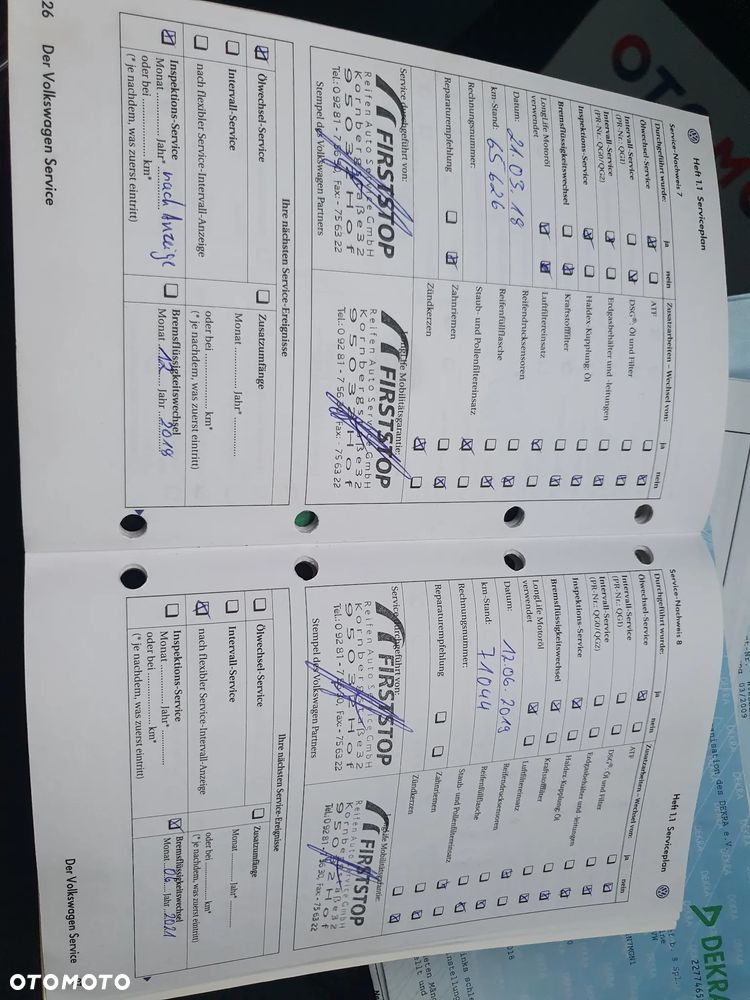 Heft 1.1 Serviceplan
Service-Nachweis 7
Durchgeführt wurde:
ja
nein
Ölwechsel-Service
Intervall-Service
(PR-Nr.: QG1)
Intervall-Service
(PR-Nr.: QG0/QG2)
Inspektions-Service
Bremsflüssigkeitswechsel
LongLife Motoröl
verwendet
Datum: 21.03.18
km-Stand: 65626
Rechnungsnummer:
Reparaturempfehlung
Zusatzarbeiten – Wechsel von:
ja
nein
ATF
DSG® Öl und Filter
Erdgasbehälter und -leitungen
Haldex-Kupplung: Öl
Kraftstofffilter
Luftfiltereinsatz
Reifendrucksensoren
Reifenfüllflasche
Staub- und Pollenfiltereinsatz
Zahnriemen
Zündkerzen
Service durchgeführt von:
FIRSTSTOP
Reifen Auto Service GmbH
Kornbergstraße 32
95032 Hof
Stempel des Volkswagen Partners
LongLife Mobilitätsgarantie:
FIRSTSTOP
Reifen Auto Service GmbH
Kornbergstraße 32
95032 Hof
Ihre nächsten Service-Ereignisse
Ölwechsel-Service
Intervall-Service
nach flexibler Service-Intervall-Anzeige
Inspektions-Service
Monat Jahr* nach Anzeige
oder bei km*
(* je nachdem, was zuerst eintritt)
Zusatzumfänge
Monat Jahr*
oder bei km*
(* je nachdem, was zuerst eintritt)
Bremsflüssigkeitswechsel
Monat 12 Jahr 2019
26 Der Volkswagen Service
Heft 1.1 Serviceplan
Service-Nachweis 8
Durchgeführt wurde:
ja
nein
Ölwechsel-Service
Intervall-Service
(PR-Nr.: QG1)
Intervall-Service
(PR-Nr.: QG0/QG2)
Inspektions-Service
Bremsflüssigkeitswechsel
LongLife Motoröl
verwendet
Datum: 12.06.2019
km-Stand: 71044
Rechnungsnummer:
Reparaturempfehlung
Zusatzarbeiten – Wechsel von:
ja
nein
ATF
DSG® Öl und Filter
Erdgasbehälter und -leitungen
Haldex-Kupplung: Öl
Kraftstofffilter
Luftfiltereinsatz
Reifendrucksensoren
Reifenfüllflasche
Staub- und Pollenfiltereinsatz
Zahnriemen
Zündkerzen
Service durchgeführt von:
FIRSTSTOP
Reifen Auto Service GmbH
Kornbergstraße 32
95032 Hof
Stempel des Volkswagen Partners
LongLife Mobilitätsgarantie:
FIRSTSTOP
Ihre nächsten Service-Ereignisse
Ölwechsel-Service
Intervall-Service
nach flexibler Service-Intervall-Anzeige
Inspektions-Service
Monat Jahr*
oder bei km*
(* je nachdem, was zuerst eintritt)
Zusatzumfänge
Monat Jahr*
oder bei km*
(* je nachdem, was zuerst eintritt)
Bremsflüssigkeitswechsel
Monat 06 Jahr 2021
Der Volkswagen Service
DEKRA
OTOMOTO